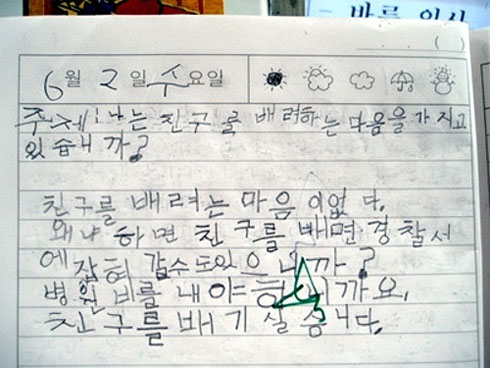 6월 2일 수요일
주제: 나는 친구를 배려하는 마음을 가지고
있습니까?
친구를 배려는 마음이없다.
왜냐하면 친구를 배면 경찰서
에잡혀 갈수도있으니까?
병원비를 내야하니까요.
친구를 배기 실슴니다.